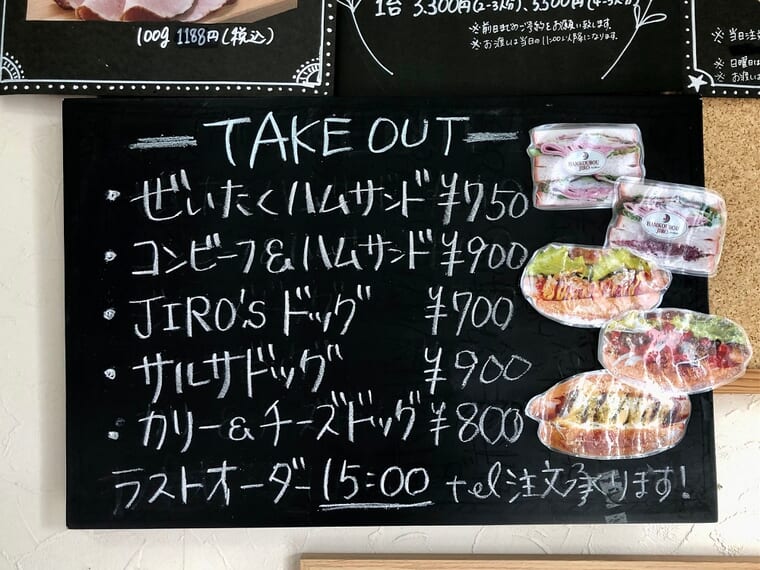 100g 1188円(税込)
1台 3,300円(2~3人分)、5,500円(4~5人分)
※前日までのご予約をお願い致します。
※お渡しは当日の11:00以降になります。
※当日注
※日曜日は
TAKE OUT
・ぜいたくハムサンド ¥750
・コンビーフ&ハムサンド ¥900
・JIRO'sドッグ ¥700
・サルサドッグ ¥900
・カリー&チーズドッグ ¥800
ラストオーダー 15:00 tel注文承ります!
HAMKOUBOU
JIRO
HAMKOUBOU
JIRO